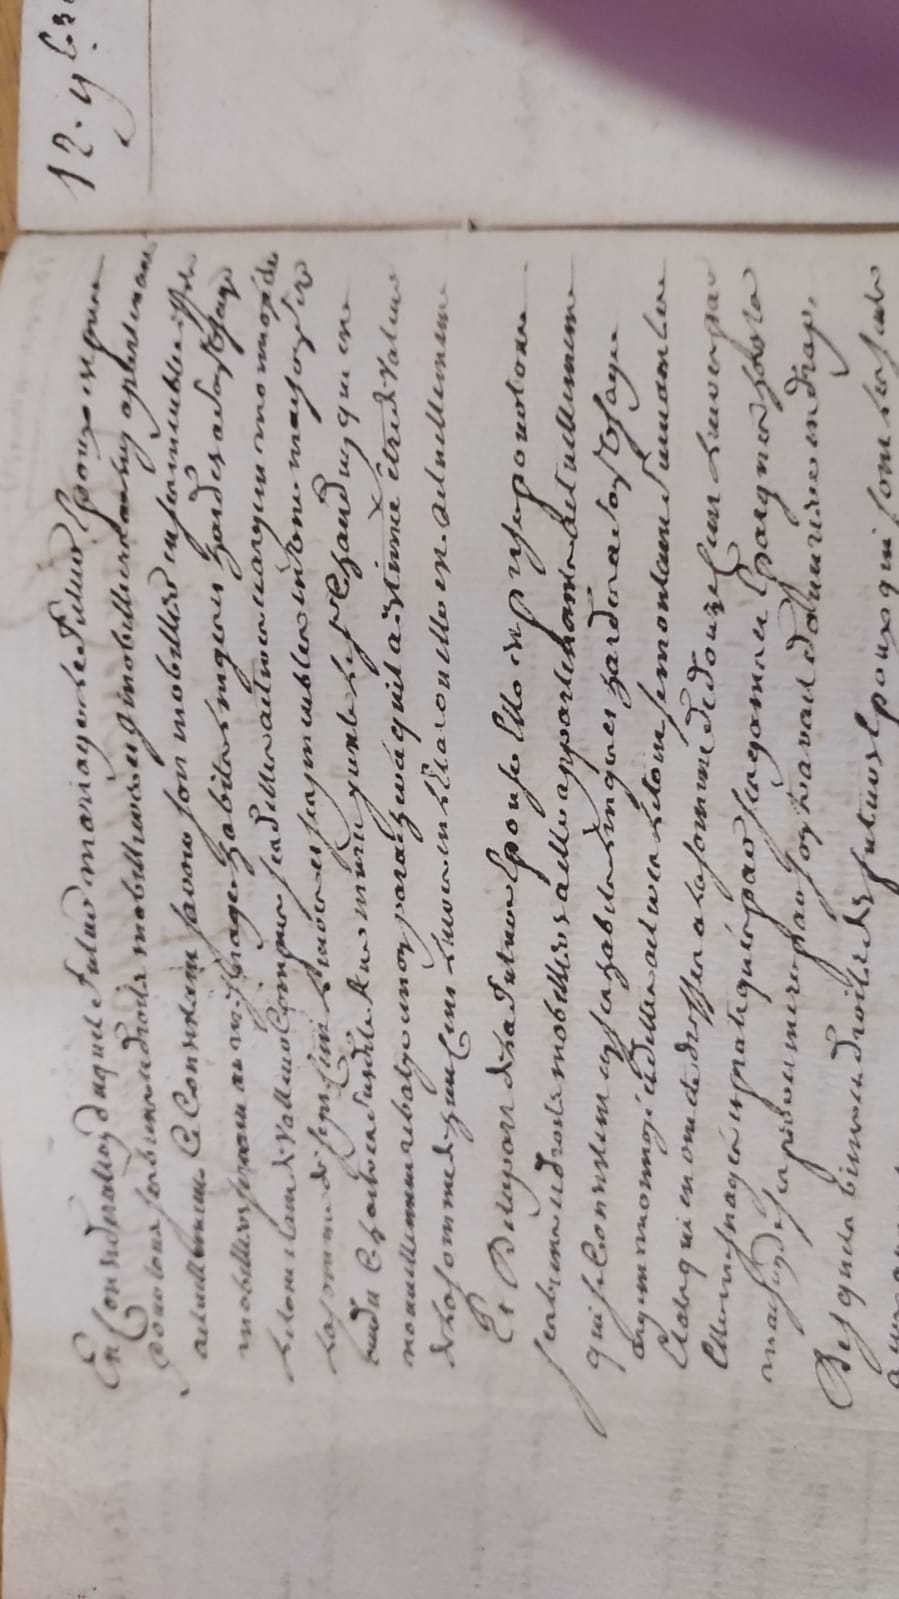 En Consideration duquel futur mariage Le Futur Epoux est pris
pour tous ses biens et droits mobilliers et Immobilliers a luy apartenans
actuellement Ce Consistant savoir son mobillier en ses meubles effets
mobilliers servant au mesnage habits Linges et hardes a son Usage
Le tout etant de Valleur Compris ses dettes actives et argent monnoyé de
La somme de sept Cent Livres et ses immeubles en Une maison
audit susdite Rue muree juxte Le Sr Chauduy qui est
nouvellement rebatye et non parachevée quil a estimée être de Valeur
de La somme de huit Cens Livres en L'Etat ou elle est actuellement
Et De la part de La Future Epouse Elle est prise pour tous
ses biens et droits mobilliers a elle appartenants actuellement
qui se Consistent en ses habits Linges et hardes a son Usage
argent monnoyé et dettes actives Le tout se montant suivant Les
Etats qui en ont été dressés a La somme De Douze Cent Livres par
Elle mesnagés et pratiqués par ses gains et Epargnes hors la
maison de ses pere et mere par son travail d'ouvriere en drap.
Desquels biens et droits des futurs Epoux qui sont Les seuls
12. 9bre